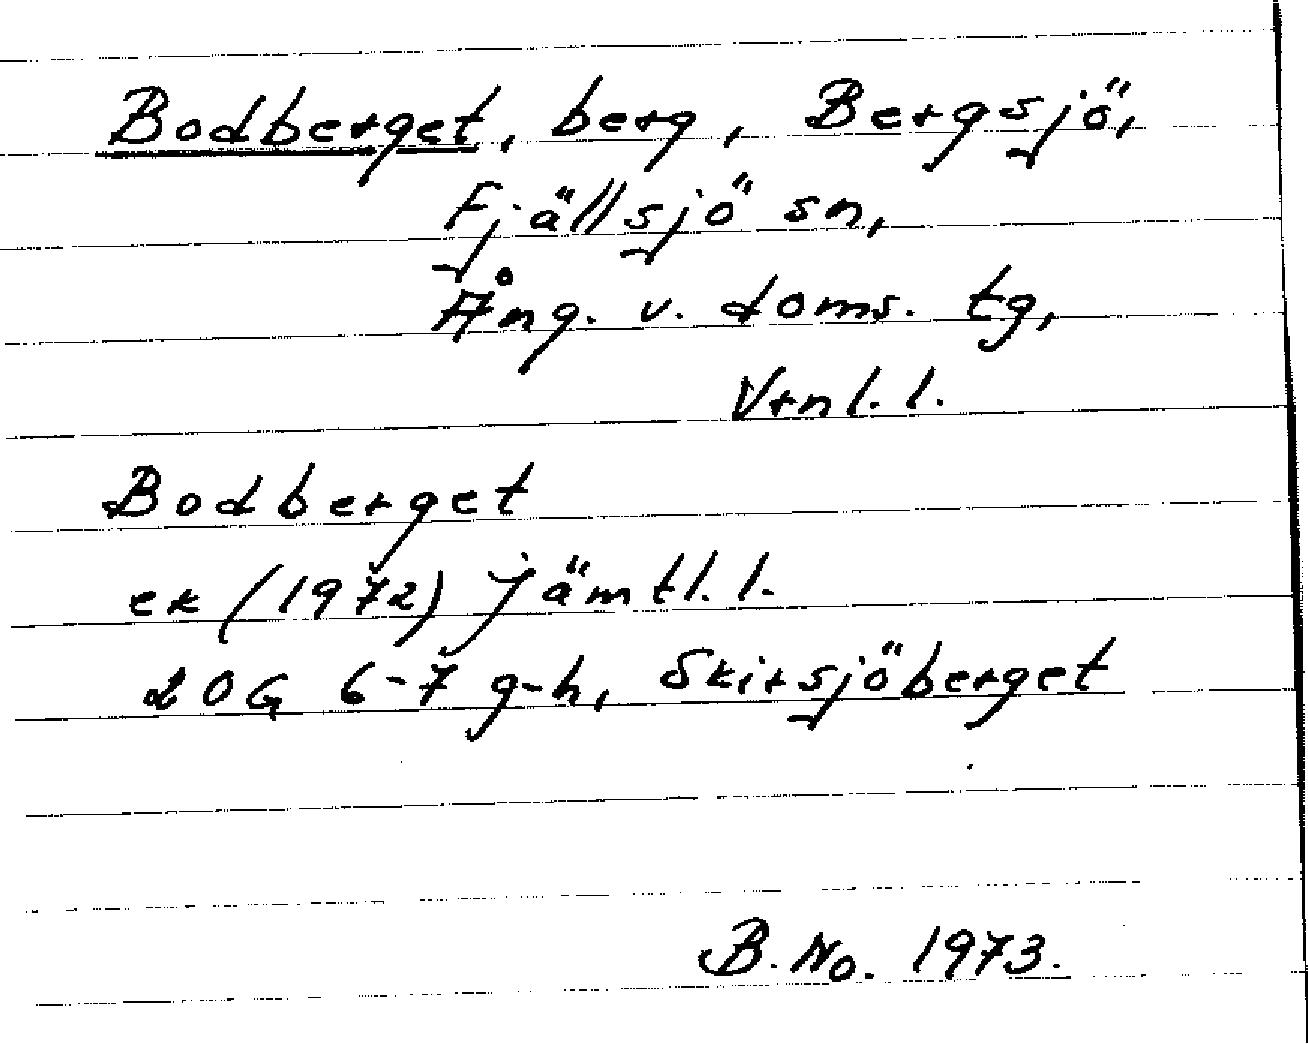 Bodberget, berg, Bergsjö,
Fjällsjö sn,
Ång. v. doms. tg,
Vrnl. l.
Bodberget
ek (1972) Jämtl. l.
20G 6-7 g-h, Skirsjöberget
B. No. 1973.